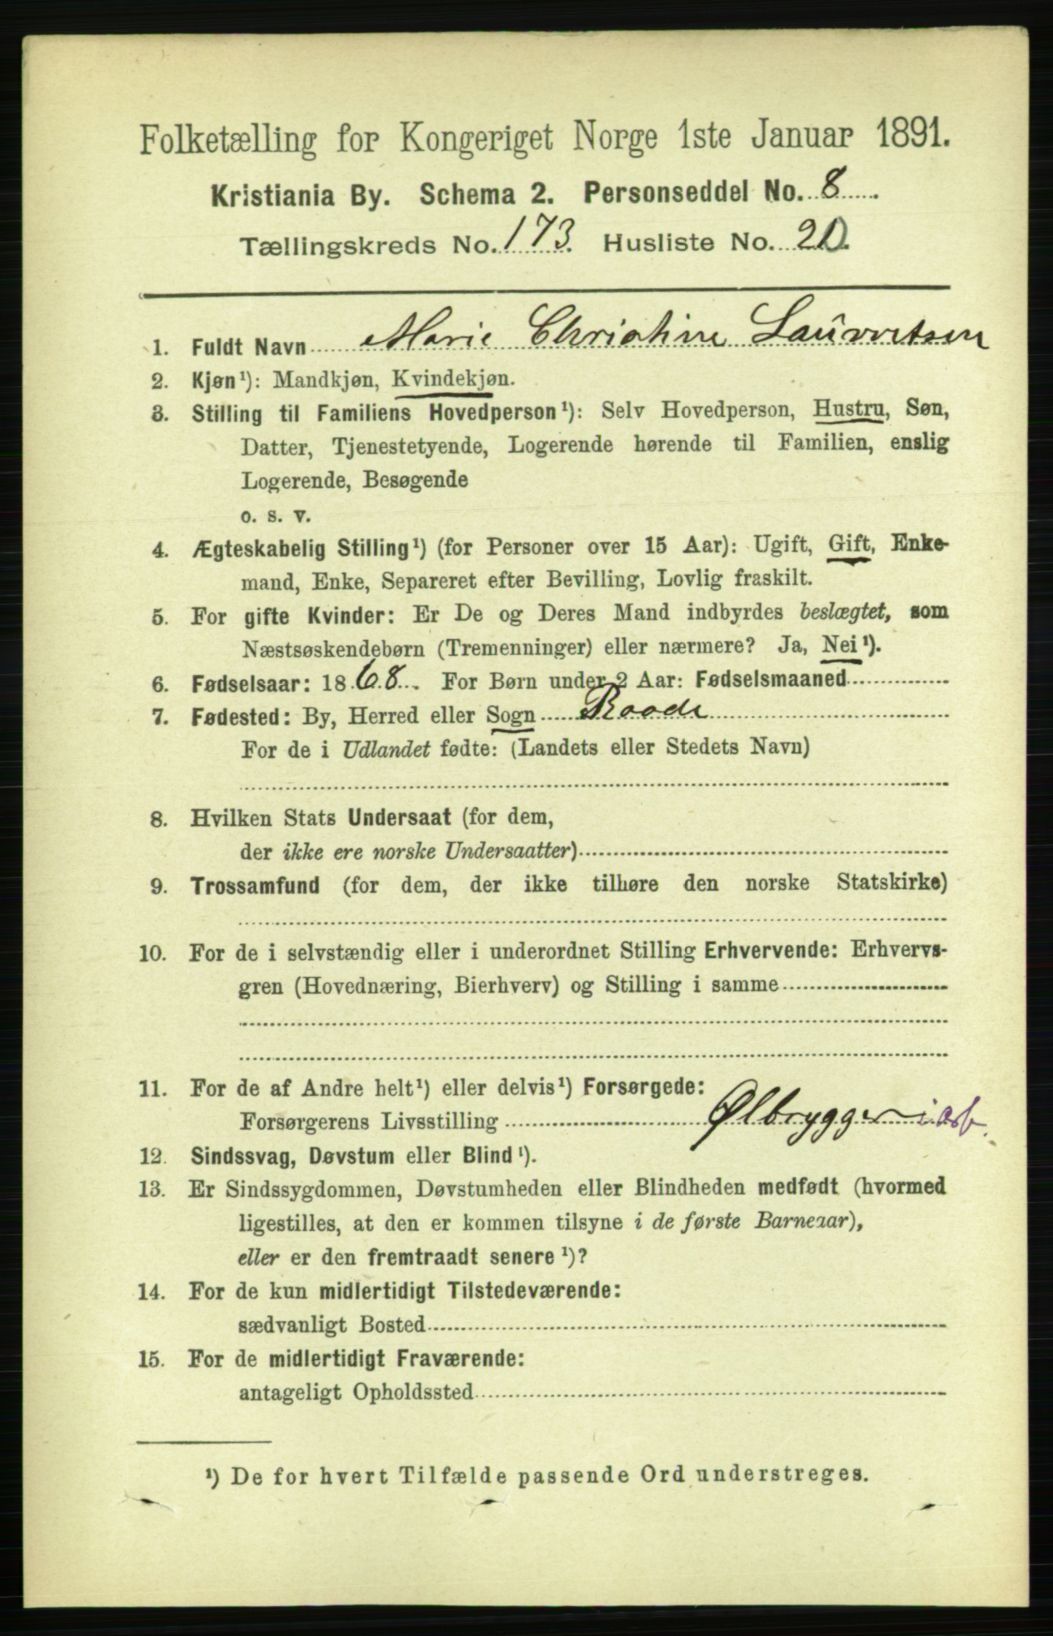 Folketælling for Kongeriget Norge 1ste Januar 1891.
Kristiania By. Schema 2. Personseddel No. 8.
Tællingskreds No. 173. Husliste No. 20.
1. Fuldt Navn Marie Christine Lauvretsen
2. Kjøn¹): Mandkjøn, Kvindekjøn.
3. Stilling til Familiens Hovedperson¹): Selv Hovedperson, Hustru, Søn,
Datter, Tjenestetyende, Logerende hørende til Familien, enslig
Logerende, Besøgende
o. s. v.
4. Ægteskabelig Stilling¹) (for Personer over 15 Aar): Ugift, Gift, Enke-
mand, Enke, Separeret efter Bevilling, Lovlig fraskilt.
5. For gifte Kvinder: Er De og Deres Mand indbyrdes beslægtet, som
Næstsøskendebørn (Tremenninger) eller nærmere? Ja, Nei¹).
6. Fødselsaar: 1868. For Børn under 2 Aar: Fødselsmaaned
7. Fødested: By, Herred eller Sogn Raade
For de i Udlandet fødte: (Landets eller Stedets Navn)
8. Hvilken Stats Undersaat (for dem,
der ikke ere norske Undersaatter)
9. Trossamfund (for dem, der ikke tilhøre den norske Statskirke)
10. For de i selvstændig eller i underordnet Stilling Erhvervende: Erhvervs-
gren (Hovednæring, Bierhverv) og Stilling i samme
11. For de af Andre helt¹) eller delvis¹) Forsørgede:
Forsørgerens Livsstilling Ølbryggeriarb.
12. Sindssvag, Døvstum eller Blind¹).
13. Er Sindssygdommen, Døvstumheden eller Blindheden medfødt (hvormed
ligestilles, at den er kommen tilsyne i de første Barneaar),
eller er den fremtraadt senere¹)?
14. For de kun midlertidigt Tilstedeværende:
sædvanligt Bosted
15. For de midlertidigt Fraværende:
antageligt Opholdssted
¹) De for hvert Tilfælde passende Ord understreges.